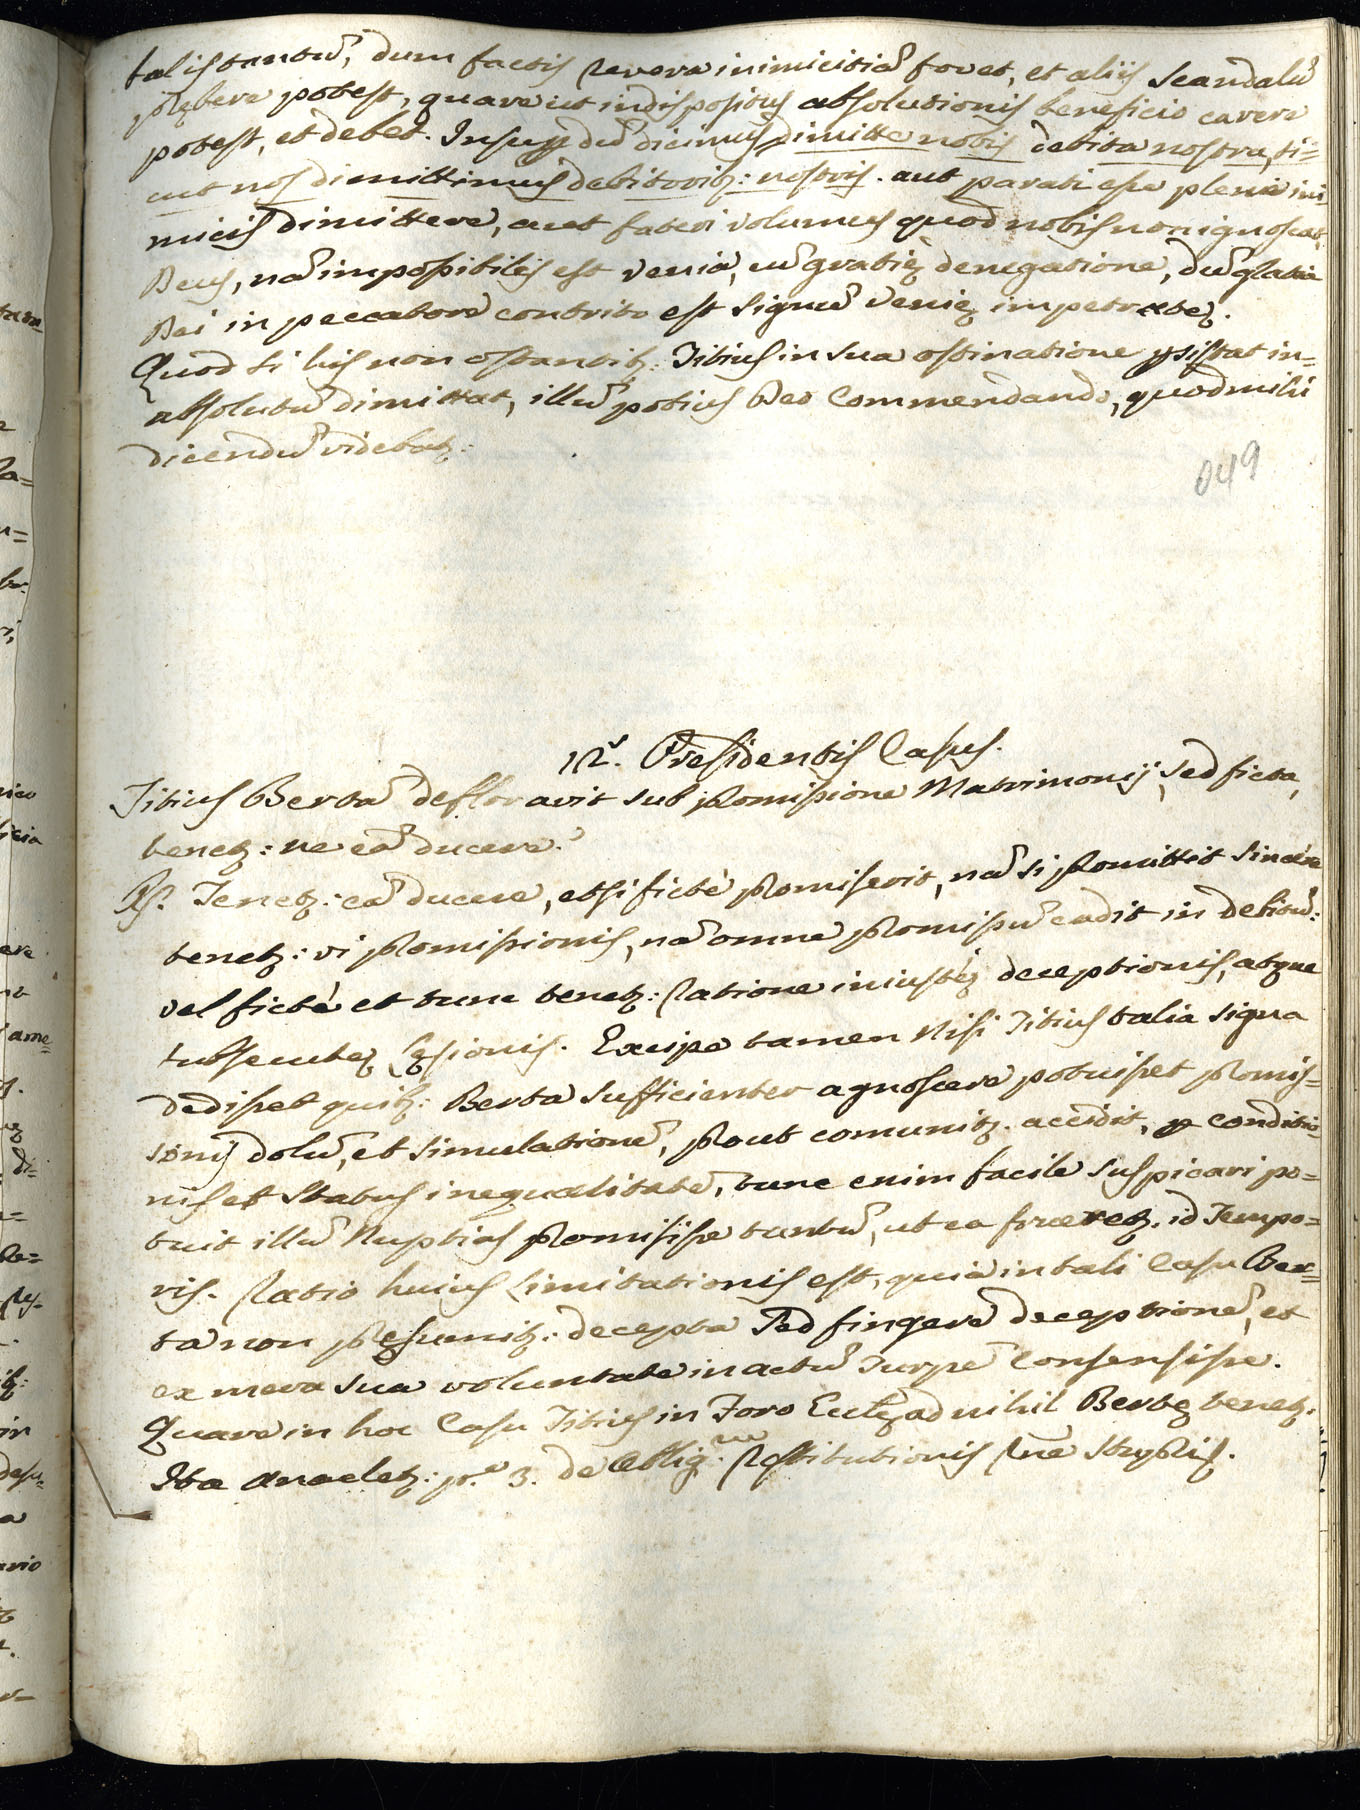 talis tantũ, dum factis revera inimicitiã fovet, et aliis scandalũ
prębere potest, quare ut indispositus absolutionis beneficio carere
potest, et debet. Insuper dũ dicimus dimitte nobis debita nostra, si=
cut nos dimittimus debitorib: nostris. aut parati esse plene ini
micis dimittere, aut fateri volumus quod nobis non ignoscat
Deus, nã impossibilis est venia, cũ gratię denegatione, dũ gratia
Dei in peccatore contrito est signũ venię impetratę.
Quod si his non ostantib: Titius in sua ostinatione psistat in=
absolutũ dimittat, illũ potius Deo Commendando, quod mihi
dicendũ videbat:
049
Pręsidentis Casus.
Titius Bertã defloravit sub promissione Matrimonij, sed ficta,
tenet: ne eã ducere?
Rs. Tenet: eã ducere, etsi fictè promiserit, nã si promittit sincere
tenet: vi promissionis, nã omne promissũ cadit in debitũ:
vel fictè et tunc tenet: ratione iniustę deceptionis, atque
subsecutę lęsionis. Excipe tamen nisi Titius talia signa
dedisset quib: Berta sufficienter agnoscere potuisset promis=
sionis dolũ, et simulationẽ, prout comunit. accidit, p conditio=
nis et status inequalitatẽ, tunc enim facile suspicari po=
tuit illũ Nuptias promisisse tantũ, ut ea frueret. id Tempo=
ris. Ratio huius limitationis est, quia in tali Casu Ber=
ta non pręsumit: decepta sed fingere deceptionẽ, et
ex mera sua voluntate in actũ turpẽ Consensisse.
Quare in hoc Casu Titius in Foro Ecclę ad nihil Bertę tenet.
Ita Anaclet: p. 3. de Oblig.ne Restitutionis rne Stupri.